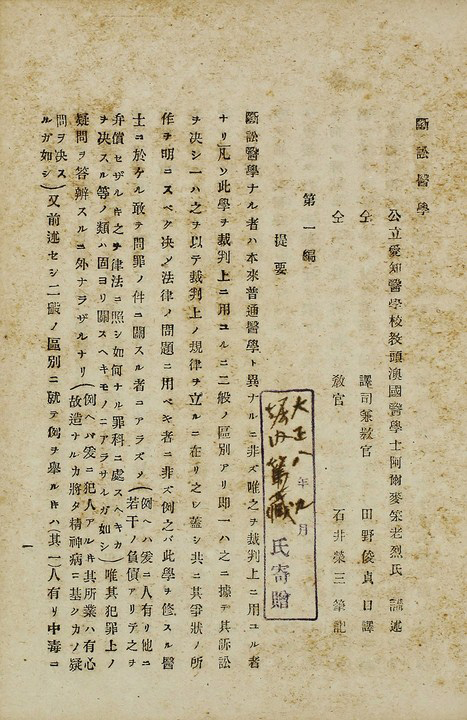 斷訟醫學
公立愛知醫學校教頭澳國醫學士阿爾麥篤老烈氏 講述
仝 譯司兼敎官 田野俊貞口譯
仝 敎官 石井榮三筆記
第一編
提要
斷訟醫學ナル者ハ本來普通醫學ト異ナルニ非ズ唯之ヲ裁判上ニ用ユル者
ナリ凡ソ此學ヲ裁判上ニ用ユルニ二般ノ區別アリ即一ハ之ニ據テ其訴訟
ヲ决シ一ハ之ヲ以テ裁判上ノ規律ヲ立ルニ在リ之レ蓋シ共ニ其爭狀ノ所
作ヲ明ニスベク决メ法律ノ問題ニ用ベキ者ニ非ズ例之バ此學ヲ修スル醫
士ニ於ケル敢テ問罪ノ件ニ關スル者ニアラズメ(例ヘハ爰ニ人有リ他ニ
若干ノ負債アリテ之ヲ
弁償セザルキ之ヲ律法ニ照シ如何ナル罪科ニ處スヘキカ
ヲ决スル等ノ類ハ固ヨリ關スヘキモノニアラサルガ如シ)唯其犯罪上ノ
疑問ヲ答辨スルニ外ナラザルナリ(例ヘバ爰ニ犯人アルキ其所業ハ有心
故造ナルカ將タ精神病ニ基クカノ疑
問ヲ决ス
ルガ如シ)又前述セシ二般ノ區別ニ就テ例ヲ擧ルキハ(其一)人有リ中毒ニ
大正八年九月
堀内 藏氏寄贈
一